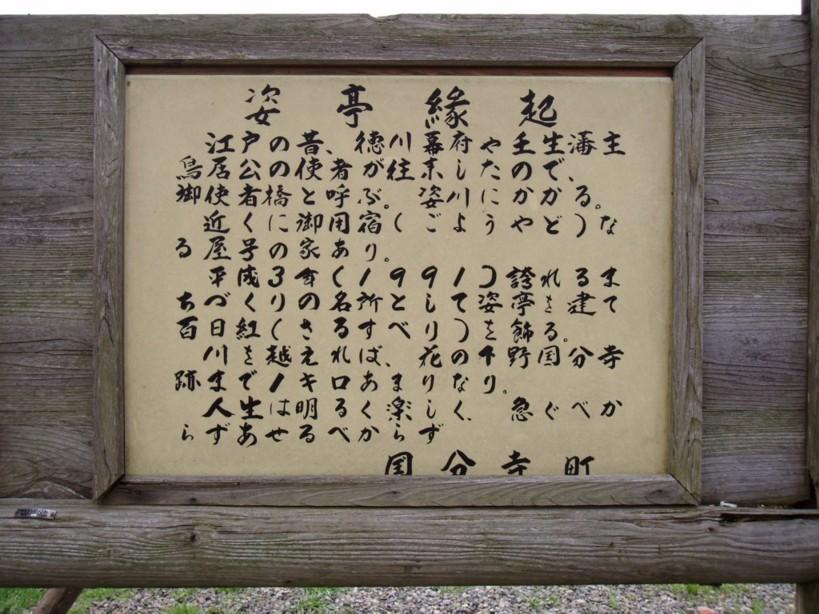 姿亭縁起
江戸の昔、徳川幕府や壬生藩主
鳥居公の使者が往来したので、
御使者橋と呼ぶ。姿川にかかる。
近くに御用宿(ごようやど)な
る屋号の家あり。
平成3年(1991)誇れるま
ちづくりの名所として姿亭を建て
百日紅(さるすべり)を飾る。
川を越えれば、花の下野国分寺
跡まで1キロあまりなり。
人生は明るく楽しく、急ぐべか
らずあせるべからず
国分寺町